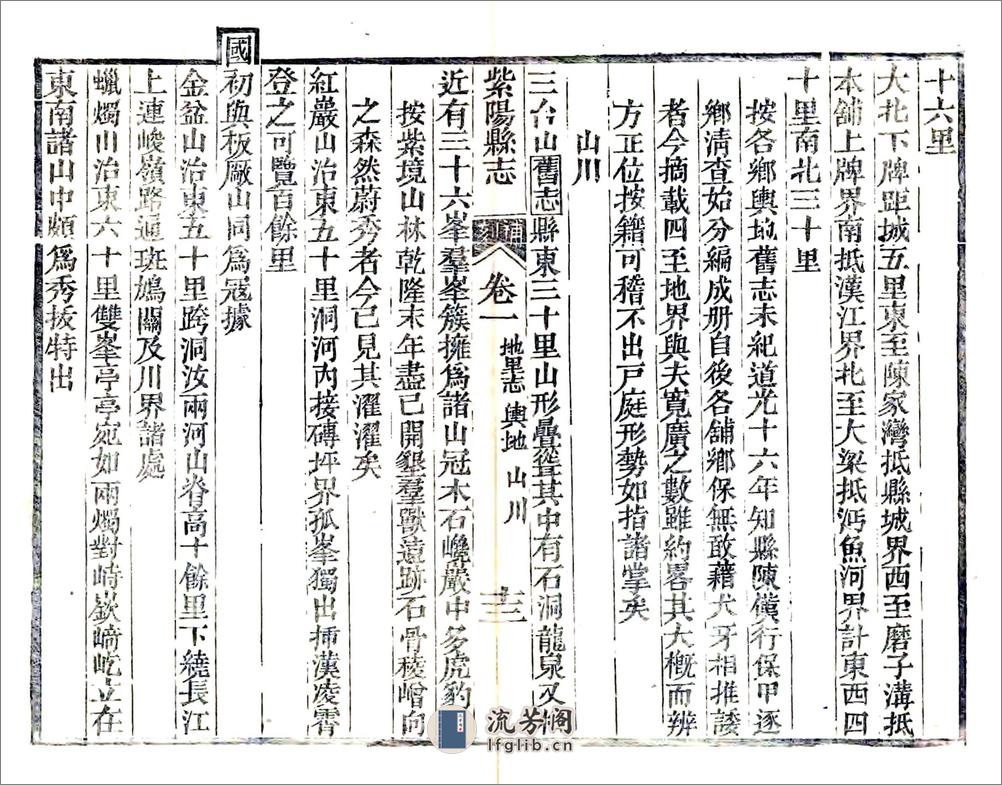 十六里
大北下牌距城五里東至陳家灣抵縣城界西至磨子溝抵
本舖上牌界南抵漢江界北至大梁抵沔魚河界計東西四
十里南北三十里
按各鄉輿地舊志未紀道光十六年知縣陳僅行保甲逐
鄉清查始分編成册自後各舖鄉保無敢藉犬牙相推諉
者今摘載四至地界與夫寬廣之數雖約畧其大概而辨
方正位按籍可稽不出戸庭形勢如指諸掌矣
山川
三台山舊志縣東三十里山形疊聳其中有石洞龍泉又
紫陽縣志
卷一 地里志 輿地 山川
十三
近有三十六峯羣峯簇擁爲諸山冠木石巉巖中多虎豹
按紫境山林乾隆末年盡已開墾羣獸遠跡石骨稜嶒向
之森然蔚秀者今已見其濯濯矣
紅巖山治東五十里洞河內接磚坪界孤峯獨出揷漢凌霄
登之可覽百餘里
國
初與板廠山同爲冠據
金盆山治東五十里跨洞汝兩河山脊高十餘里下繞長江
上連峻嶺路通斑鳩關及川界諸處
蠟燭山治東六十里雙峯亭亭宛如兩燭對峙嶔崎屹立在
東南諸山中頗爲秀拔特出
流芳閣
lfglib.cn